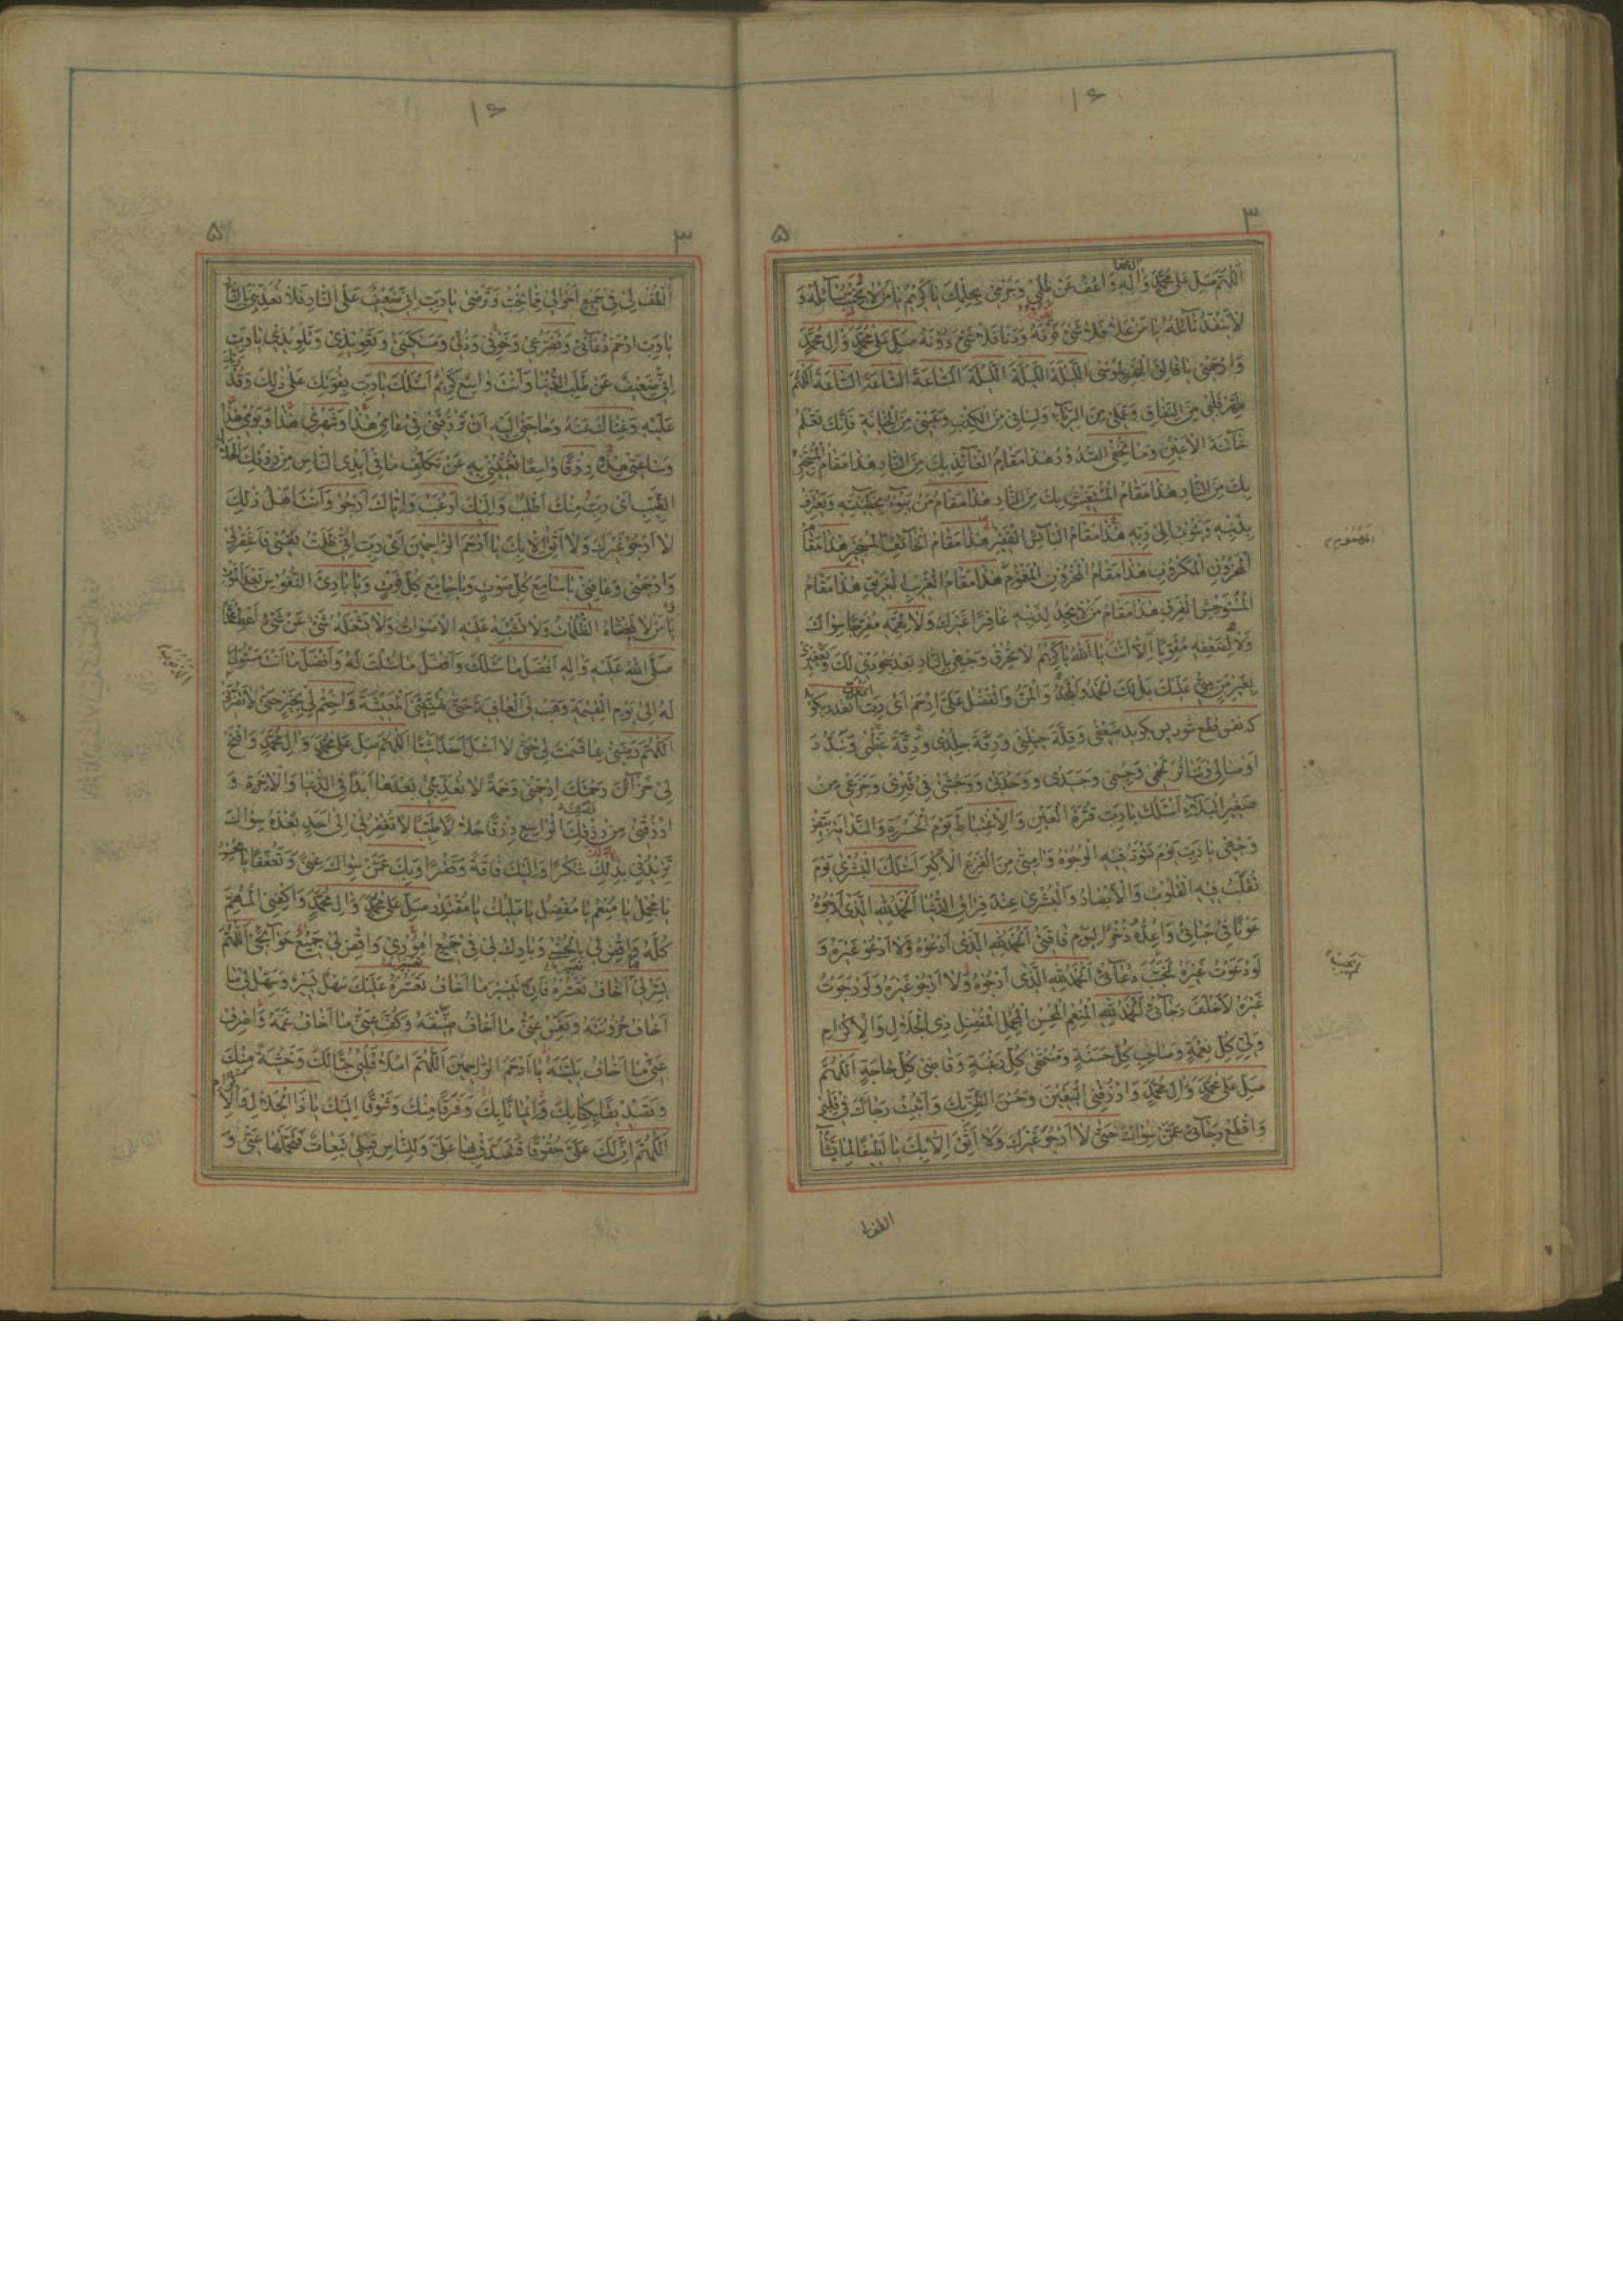 ۱۶
۳
۵
اَللّٰهُمَّ صَلِّ عَلٰى مُحَمَّدٍ وَاٰلِهِ وَاعْفُ عَنْ ظُلْمِي وَجُرْمِي بِحِلْمِكَ يا كَرِيمُ يا مَنْ لا يَخِيبُ سآئِلُهُ وَ
لا يَنْفَدُ نآئِلُهُ يا مَنْ عَلا فَلا شَيْءَ فَوْقَهُ وَدَنا فَلا شَيْءَ دُوْنَهُ صَلِّ عَلٰى مُحَمَّدٍ وَاٰلِ مُحَمَّدٍ
وَارْحَمْنِي يا فالِقَ الْبَحْرِ لِمُوسَى اللَّيْلَةَ اللَّيْلَةَ اللَّيْلَةَ السّاعَةَ السّاعَةَ السّاعَةَ اَللّٰهُمَّ
طَهِّرْ قَلْبِي مِنَ النِّفاقِ وَعَمَلِي مِنَ الرِّيآءِ وَلِسانِي مِنَ الْكِذْبِ وَعَيْنِي مِنَ الْخِيانَةِ فَاِنَّكَ تَعْلَمُ
خآئِنَةَ الْاَعْيُنِ وَما تُخْفِي الصُّدُوْرُ هٰذا مَقامُ الْعآئِذِ بِكَ مِنَ النّارِ هٰذا مَقامُ الْمُسْتَجِيرِ
بِكَ مِنَ النّارِ هٰذا مَقامُ الْمُسْتَغِيثِ بِكَ مِنَ النّارِ هٰذا مَقامُ مَنْ يَبُوْءُ بِخَطِيئَتِهِ وَيَعْتَرِفُ
بِذَنْبِهِ وَيَتُوْبُ اِلٰى رَبِّهِ هٰذا مَقامُ الْبآئِسِ الْفَقِيرِ هٰذا مَقامُ الْخآئِفِ الْمُسْتَجِيرِ هٰذا مَقامُ
الْمَحْزُوْنِ الْمَكْرُوْبِ هٰذا مَقامُ الْمَحْزُوْنِ الْمَغْمُوْمِ هٰذا مَقامُ الْغَرِيبِ الْغَرِيقِ هٰذا مَقامُ
الْمُسْتَوْحِشِ الْفَرِقِ هٰذا مَقامُ مَنْ لا يَجِدُ لِذَنْبِهِ غافِرًا غَيْرَكَ وَلا لِهَمِّهِ مُفَرِّجًا سِواكَ
وَلا لِضَعْفِهِ مُقَوِّيًا اِلّا اَنْتَ يا اَللهُ يا كَرِيمُ لا تُحْرِقْ وَجْهِي بِالنّارِ بَعْدَ سُجُوْدِي لَكَ وَتَعْفِيرِي
بِغَيْرِ مَنٍّ مِنِّي عَلَيْكَ بَلْ لَكَ الْحَمْدُ وَالْمَنُّ وَالْفَضْلُ عَلَيَّ اِرْحَمْ اَيْ رَبِّ
كه نفس قطع شود پس بگويد ضَعْفِي وَقِلَّةَ حِيلَتِي وَرِقَّةَ جِلْدِي وَدِقَّةَ عَظْمِي وَتَبَدُّدَ
اَوْصالِي وَتَناثُرَ لَحْمِي وَجِسْمِي وَجَسَدِي وَوَحْدَتِي وَوَحْشَتِي فِي قَبْرِي وَجَزَعِي مِنْ
صَغِيرِ الْبَلآءِ اَسْئَلُكَ يا رَبِّ قُرَّةَ الْعَيْنِ وَالْاِغْتِباطَ يَوْمَ الْحَسْرَةِ وَالنَّدامَةِ بَيِّضْ
وَجْهِي يا رَبِّ يَوْمَ تَسْوَدُّ فِيهِ الْوُجُوْهُ وَاٰمِنِّي مِنَ الْفَزَعِ الْاَكْبَرِ اَسْئَلُكَ الْبُشْرٰى يَوْمَ
تُقَلَّبُ فِيهِ الْقُلُوْبُ وَالْاَبْصارُ وَالْبُشْرٰى عِنْدَ فِراقِ الدُّنْيا اَلْحَمْدُ لِلّٰهِ الَّذِي اَرْجُوْهُ
عَوْنًا فِي حَياتِي وَاُعِدُّهُ ذُخْرًا لِيَوْمِ فاقَتِي اَلْحَمْدُ لِلّٰهِ الَّذِي اَدْعُوْهُ وَلا اَدْعُوْ غَيْرَهُ وَ
لَوْ دَعَوْتُ غَيْرَهُ لَخَيَّبَ دُعآئِي اَلْحَمْدُ لِلّٰهِ الَّذِي اَرْجُوْهُ وَلا اَرْجُوْ غَيْرَهُ وَلَوْ رَجَوْتُ
غَيْرَهُ لَاَخْلَفَ رَجآئِي اَلْحَمْدُ لِلّٰهِ الْمُنْعِمِ الْمُحْسِنِ الْمُجْمِلِ الْمُفْضِلِ ذِي الْجَلالِ وَالْاِكْرامِ
وَلِيِّ كُلِّ نِعْمَةٍ وَصاحِبِ كُلِّ حَسَنَةٍ وَمُنْتَهٰى كُلِّ رَغْبَةٍ وَقاضِي كُلِّ حاجَةٍ اَللّٰهُمَّ
صَلِّ عَلٰى مُحَمَّدٍ وَاٰلِ مُحَمَّدٍ وَارْزُقْنِي الْيَقِينَ وَحُسْنَ الظَّنِّ بِكَ وَاَثْبِتْ رَجآئَكَ فِي قَلْبِي
وَاقْطَعْ رَجآئِي عَمَّنْ سِواكَ حَتّٰى لا اَرْجُوَ غَيْرَكَ وَلا اَثِقَ اِلّا بِكَ يا لَطِيفًا لِما يَشآءُ
الطف لی
۱۶
۳
۵
اُلْطُفْ لِي فِي جَمِيعِ اَحْوالِي بِما تُحِبُّ وَتَرْضٰى يا رَبِّ اِنِّي ضَعِيفٌ عَلَى النّارِ فَلا تُعَذِّبْنِي بِالنّارِ
يا رَبِّ ارْحَمْ دُعآئِي وَتَضَرُّعِي وَخَوْفِي وَذُلِّي وَمَسْكَنَتِي وَتَعْوِيذِي وَتَلْوِيذِي يا رَبِّ
اِنِّي ضَعِيفٌ عَنْ طَلَبِ الدُّنْيا وَاَنْتَ واسِعٌ كَرِيمٌ اَسْئَلُكَ يا رَبِّ بِقُوَّتِكَ عَلٰى ذٰلِكَ وَقُدْرَتِكَ
عَلَيْهِ وَغِناكَ عَنْهُ وَحاجَتِي اِلَيْهِ اَنْ تَرْزُقَنِي فِي عامِي هٰذا وَشَهْرِي هٰذا وَيَوْمِي هٰذا
وَساعَتِي هٰذِهِ رِزْقًا واسِعًا تُغْنِينِي بِهِ عَنْ تَكَلُّفِ ما فِي اَيْدِي النّاسِ مِنْ رِزْقِكَ الْحَلالِ
الطَّيِّبِ اَيْ رَبِّ مِنْكَ اَطْلُبُ وَاِلَيْكَ اَرْغَبُ وَاِيّاكَ اَرْجُوْ وَاَنْتَ اَهْلُ ذٰلِكَ
لا اَرْجُوْ غَيْرَكَ وَلا اَثِقُ اِلّا بِكَ يا اَرْحَمَ الرّاحِمِينَ اَيْ رَبِّ اِنِّي ظَلَمْتُ نَفْسِي فَاغْفِرْ لِي
وَارْحَمْنِي وَعافِنِي يا سامِعَ كُلِّ صَوْتٍ وَيا جامِعَ كُلِّ فَوْتٍ وَيا بارِئَ النُّفُوْسِ بَعْدَ الْمَوْتِ
يا مَنْ لا تَغْشاهُ الظُّلُماتُ وَلا تَشْتَبِهُ عَلَيْهِ الْاَصْواتُ وَلا يَشْغَلُهُ شَيْءٌ عَنْ شَيْءٍ اَعْطِ مُحَمَّدًا
صَلَّى اللهُ عَلَيْهِ وَاٰلِهِ اَفْضَلَ ما سَئَلَكَ وَاَفْضَلَ ما سُئِلْتَ لَهُ وَاَفْضَلَ ما اَنْتَ مَسْئُوْلٌ
لَهُ اِلٰى يَوْمِ الْقِيٰمَةِ وَهَبْ لِيَ الْعافِيَةَ حَتّٰى تُهَنِّئَنِي الْمَعِيشَةَ وَاخْتِمْ لِي بِخَيْرٍ حَتّٰى لا تَضُرَّنِي
اَللّٰهُمَّ رَضِّنِي بِما قَسَمْتَ لِي حَتّٰى لا اَسْئَلَ اَحَدًا شَيْئًا اَللّٰهُمَّ صَلِّ عَلٰى مُحَمَّدٍ وَاٰلِ مُحَمَّدٍ وَافْتَحْ
لِي خَزآئِنَ رَحْمَتِكَ وَارْحَمْنِي رَحْمَةً لا تُعَذِّبْنِي بَعْدَها اَبَدًا فِي الدُّنْيا وَالْاٰخِرَةِ وَ
ارْزُقْنِي مِنْ رِزْقِكَ الْواسِعِ رِزْقًا حَلالًا طَيِّبًا لا تُفْقِرُنِي اِلٰى اَحَدٍ بَعْدَهُ سِواكَ
تَزِيدُنِي بِذٰلِكَ شُكْرًا وَاِلَيْكَ فاقَةً وَفَقْرًا وَبِكَ عَمَّنْ سِواكَ غِنًى وَتَعَفُّفًا يا مُحْسِنُ
يا مُجْمِلُ يا مُنْعِمُ يا مُفْضِلُ يا مَلِيكُ يا مُقْتَدِرُ صَلِّ عَلٰى مُحَمَّدٍ وَاٰلِ مُحَمَّدٍ وَاكْفِنِي الْمُهِمَّ
كُلَّهُ وَاقْضِ لِي بِالْحُسْنٰى وَبارِكْ لِي فِي جَمِيعِ اُمُوْرِي وَاقْضِ لِي جَمِيعَ حَوآئِجِي اَللّٰهُمَّ
يَسِّرْ لِي ما اَخافُ تَعَسُّرَهُ فَاِنَّ تَيْسِيرَ ما اَخافُ تَعَسُّرَهُ عَلَيْكَ سَهْلٌ يَسِيرٌ وَسَهِّلْ لِي ما
اَخافُ حُزُوْنَتَهُ وَنَفِّسْ عَنِّي ما اَخافُ ضِيقَهُ وَكُفَّ عَنِّي ما اَخافُ غَمَّهُ وَاصْرِفْ
عَنِّي ما اَخافُ بَلِيَّتَهُ يا اَرْحَمَ الرّاحِمِينَ اَللّٰهُمَّ امْلَأْ قَلْبِي حُبًّا لَكَ وَخَشْيَةً مِنْكَ
وَتَصْدِيقًا بِكِتابِكَ وَاِيمانًا بِكَ وَفَرَقًا مِنْكَ وَشَوْقًا اِلَيْكَ يا ذَا الْجَلالِ وَالْاِكْرامِ
اَللّٰهُمَّ اِنَّ لَكَ عَلَيَّ حُقُوْقًا فَتَصَدَّقْ بِها عَلَيَّ وَلِلنّاسِ قِبَلِي تَبِعاتٌ فَتَحَمَّلْها عَنِّي وَ